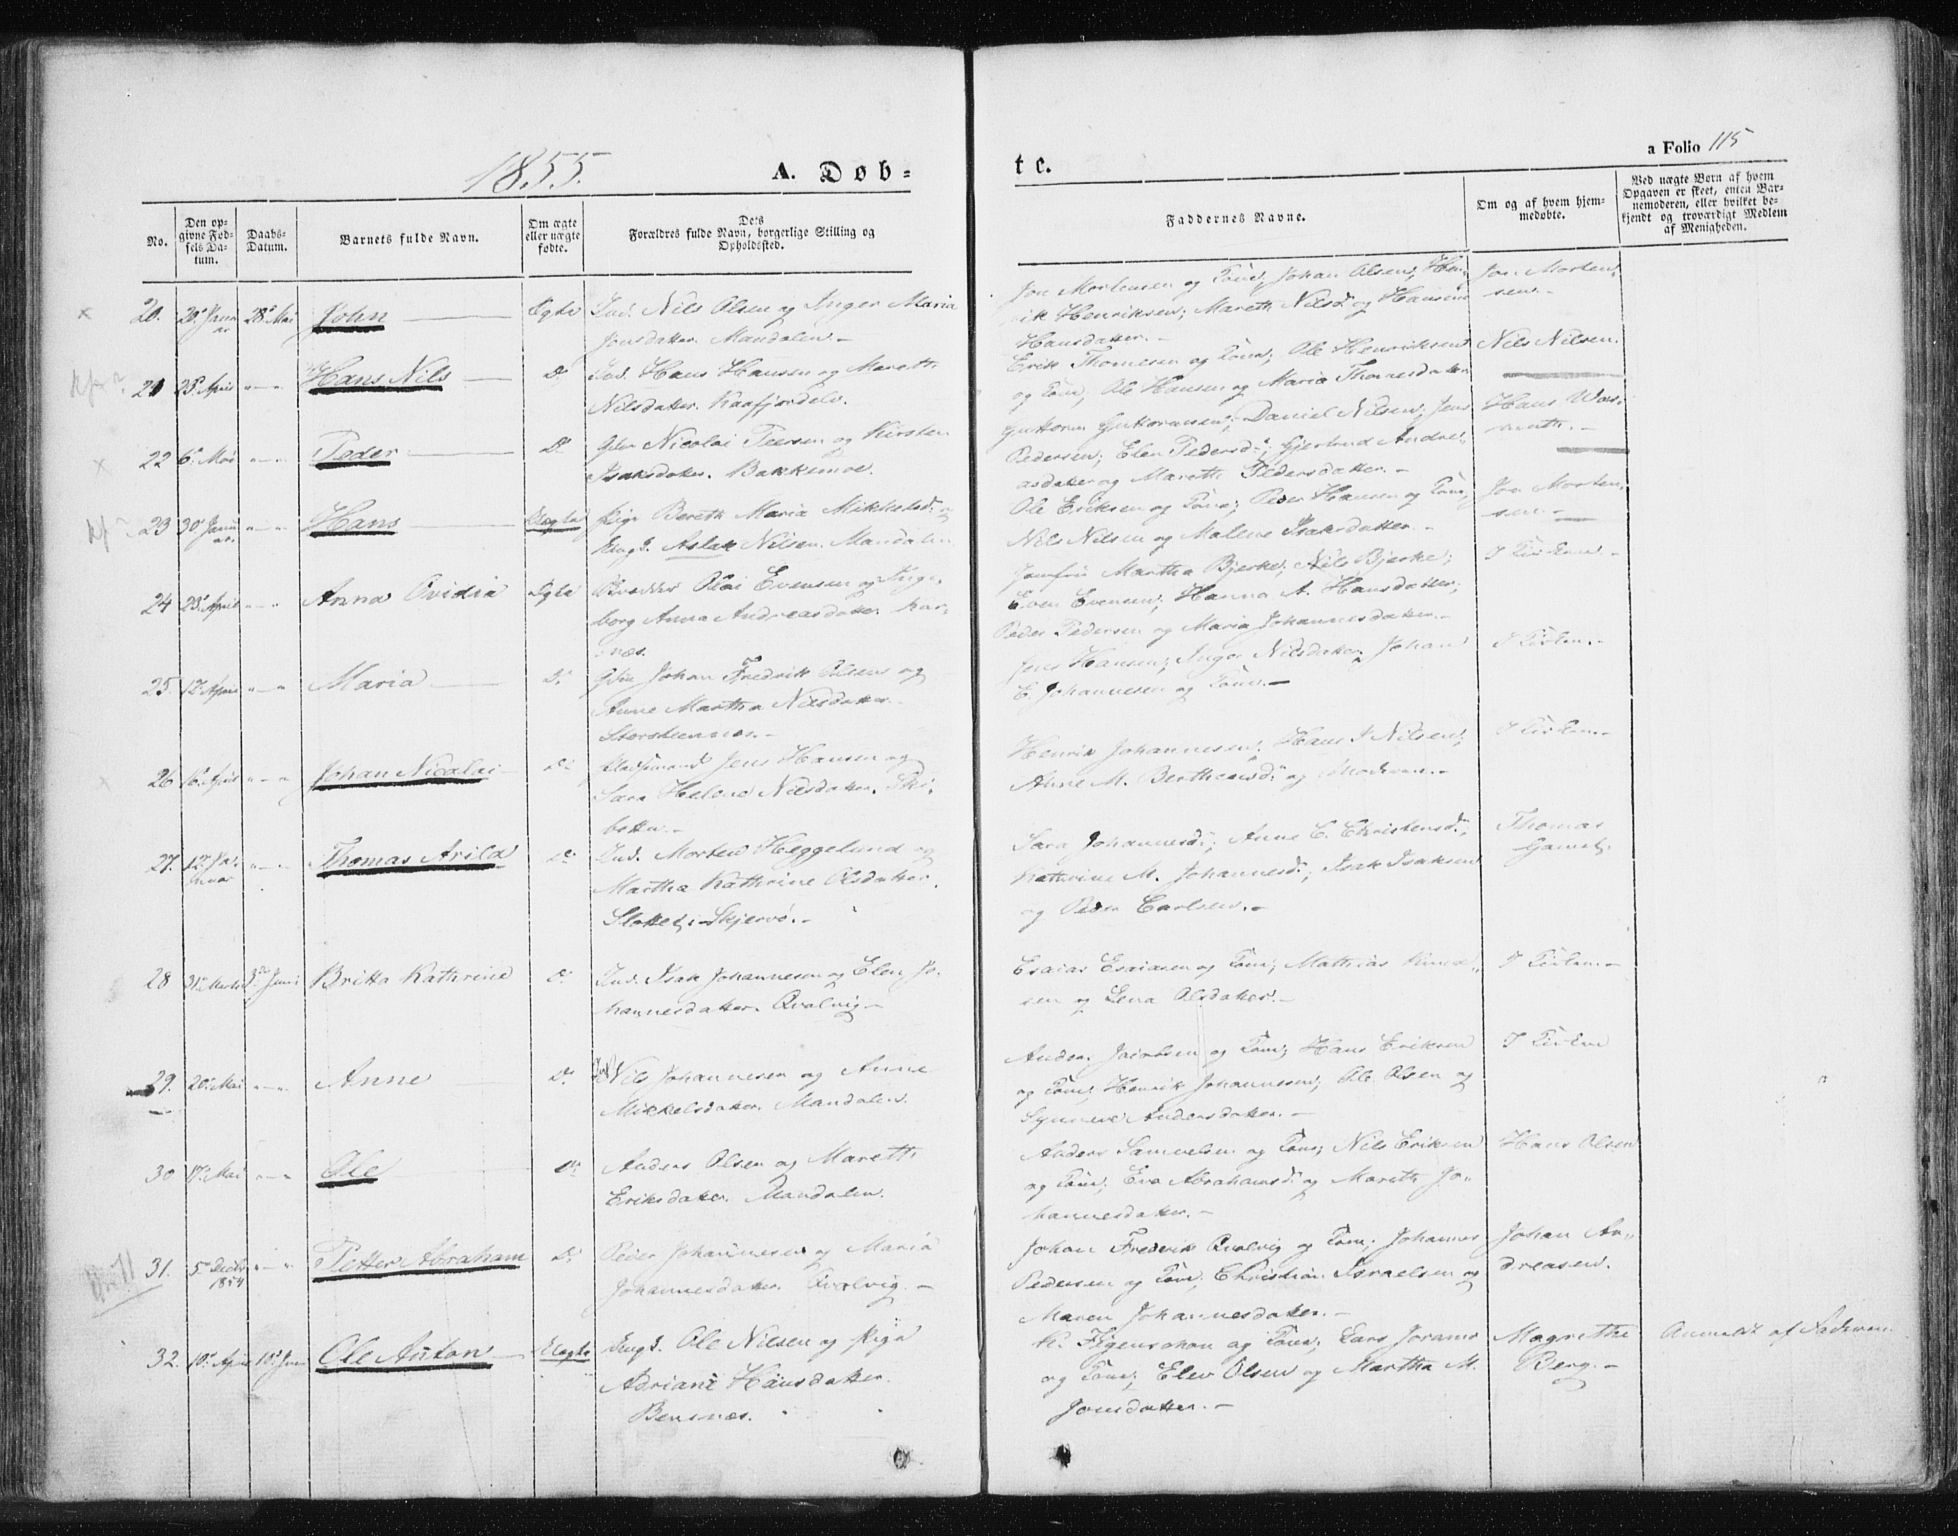 1855.
A. Døb=
te.
a Folio 115
No.
Den op-
givne Fød-
sels Da-
tum.
Daabs-
Datum.
Barnets fulde Navn.
Om ægte
eller uægte
fødte.
Dets
Forældres fulde Navn, borgerlige Stilling og
Opholdssted.
Faddernes Navne.
Om og af hvem hjem-
medøbte.
Ved uægte Børn af hvem
Opgaven er skeet, enten Bar-
nemoderen, eller hvilket be-
kjendt og troværdigt Medlem
af Menigheden.
20. 20de Janu-
ar 28de Mai John Egte Ind. Nils Olsen og Inger Maria
Jonsdatter. Mandalen.-
Jon Mortensen og Kone; Johan Olsen; Hen-
rik Henriksen; Mareth Nilsd. og Hansine
Hansdatter.-
Jon Morten-
sen.-
21 25de April Hans Nils Do Ind. Hans Hansen og Mareth
Nilsdatter. Kaafjorddelv.
Erik Thomesen og Kone; Ole Henriksen
og Kone; Ole Hansen og Maria Thomesdatter
Nils Nilsen.
22 6te Mai Peder Do Gbr Nicolai Peersen og Kirsten
Isaksdatter. Bakkemoe.
Guttorm Guttormsen; Daniel Nilsen; Jens
Pedersen; Elen Pedersdr; Gjertrud Andre-
asdatter og Mareth Pedersdatter.-
Hans Was-
muth.-
23 30te Janu-
ar. Hans Uegte Pige Bereth Maria Mikkelsdr og
Ungk. Aslak Nilsen. Mandalen
Ole Eriksen og Kone; Peder Hansen og Kone;
Nils Nilsen og Malene Isaksdatter.-
Jon Morten-
sen.-
24 23de April Anna Ovidia Egte Olai Evensen og Inge-
borg Anna Andreasdatter. Kar-
næs.
Jomfru Martha Bjerke; Nils Bjerke;
Even Evensen; Hanna A. Hansdatter;
Peder Pedersen og Maria Johannesdatter.-
I Kirken.-
25 12te April Maria Do Johan Fredrik Olsen og
Anne Martha Nilsdatter.
Storsteennes.-
Jens Hansen; Inger Nilsdatter; Johan
E. Johannesen og Kone.-
I Kirken.-
26 16de April Johan Nicolai Do Jens Hansen og
Sara Helene Nilsdatter. Ski-
botten.-
Henrik Johannesen; Hans J Nilsen;
Anne M. Bertheusdr og Moderen.-
I Kirken.-
27. 12te Ja-
nuar Thomas Arild Do Ind. Morten Heggelund og
Martha Kathrine Olsdatter.
Slottet i Skjervø.-
Sara Johannesdr; Anne C. Christensdr;
Kathrine M. Johannesdr; Isak Isaksen
og Peder Carlsen.-
Thomas
Gamst.
28 31te Marts 3die Juni Britta Kathrine Do Ind. Isak Johannesen og Elen Jo-
hannesdatter. Qvalvig.-
Esaias Esaiasen og Kone; Mathias
sen og Lena Olsdatter.-
I Kirken.-
29. 20de Mai Anne Do Ind. Nils Johannesen og Anne
Mikkelsdatter. Mandalen.
Anders Jacobsen og Kone; Hans Eriksen
og Kone; Henrik Johannesen; Ole Olsen og
Synneve Andersdatter.-
I Kirken
30 17de Mai Ole Do Anders Olsen og Mareth
Eriksdatter. Mandalen.
Anders Samuelsen og Kone; Nils Eriksen
og Kone; Eva Abrahamsdr og Mareth Jo-
hannesdatter.-
Hans Olsen
31. 5te Decbr
1854 Petter Abraham Do Peder Johannesen og Maria
Johannesdatter. Qvalvig.-
Johan Fredrik Qvalvig og Kone; Johannes
Pedersen og Kone; Christian Israelsen og
Maren Johannesdatter.-
Johan An-
dreasen.
32. 10de April 10de Juni Ole Anton Uegte Ungk. Ole Nilsen og Pige
Adriane Hansdatter.
Bensnæs.
K. Figenschou og Kone; Lars Jorams
og Kone; Elev Olsen og Martha M.
Jonsdatter.-
Magrethe
Berg.-
Anmeldt af Faderen.